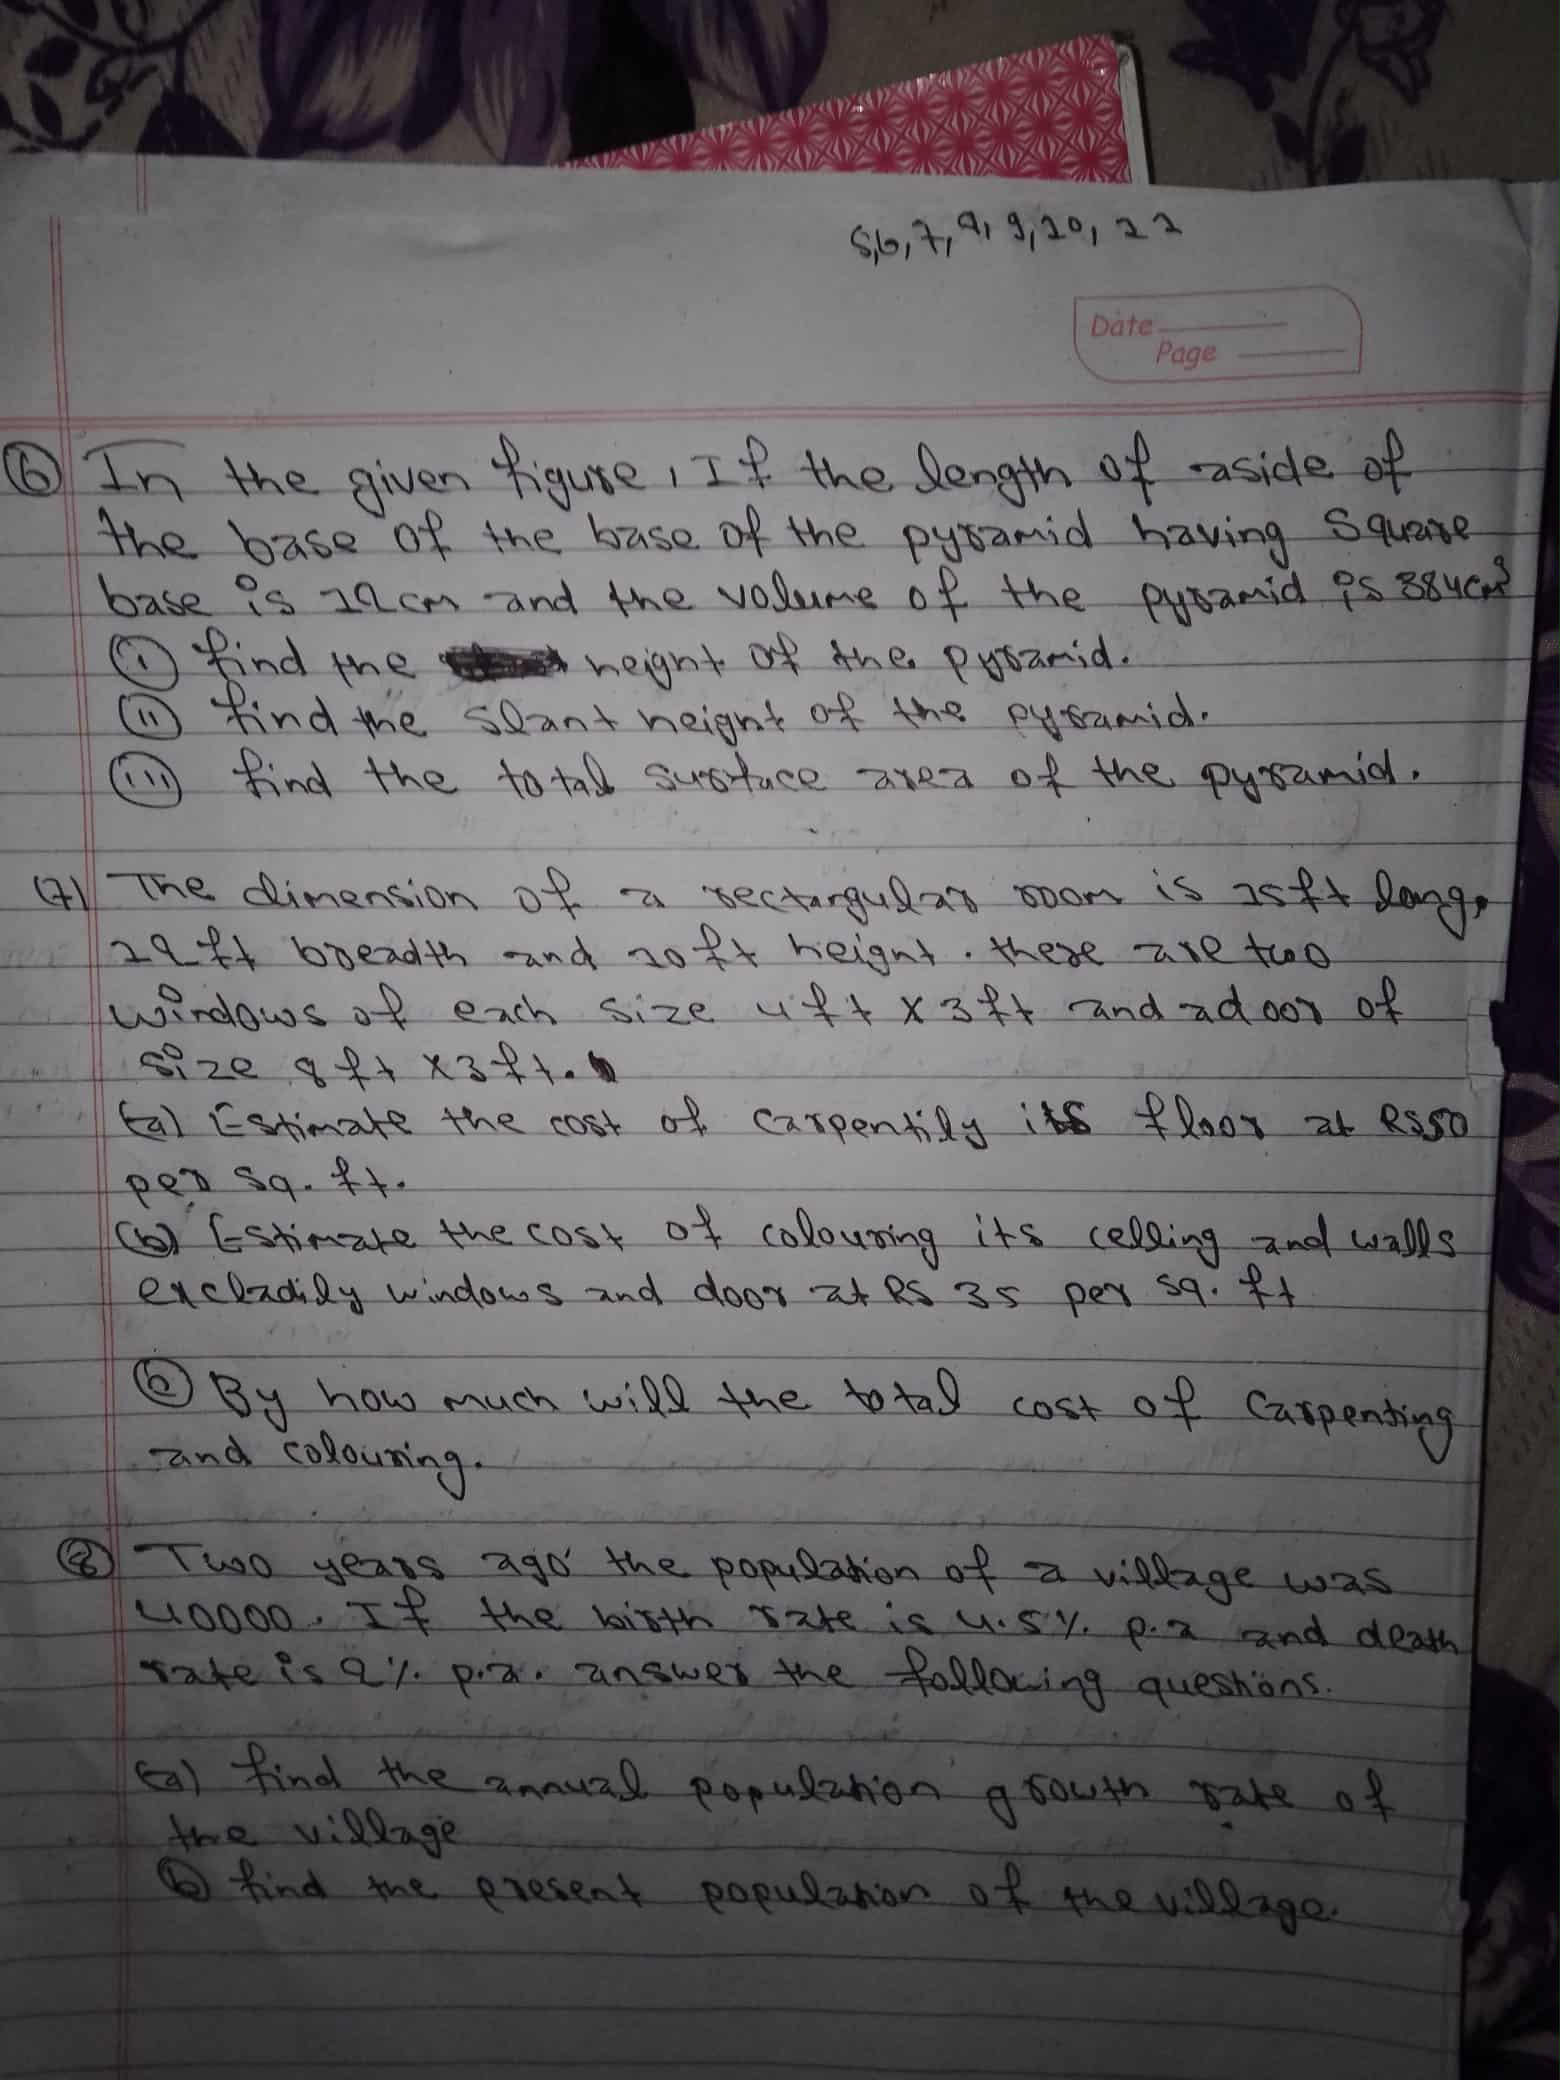 5,6,7,8,9,10,11
Date
Page
⑥ In the given figure, If the length of aside of
the base of the base of the pyramid having square
base is 12cm and the volume of the pyramid is 384cm³
(i) find the height of the pyramid.
(ii) find the slant height of the pyramid.
(iii) find the total surface area of the pyramid.
(7) The dimension of a rectangular room is 15ft long,
12ft breadth and 10ft height. there are two
windows of each size 4ft x 3ft and adoor of
size 8ft x3ft.
(a) Estimate the cost of carpentily its floor at Rs50
per sq. ft.
(b) Estimate the cost of colouring its celling and walls
excladily windows and door at Rs 35 per sq. ft
(c) By how much will the total cost of carpenting
and colouring.
⑧ Two years ago the population of a village was
40000. If the birth rate is 4.5% p.a and death
rate is 2% p.a. answer the following questions.
(a) find the annual population growth rate of
the village
(b) find the present population of the village.